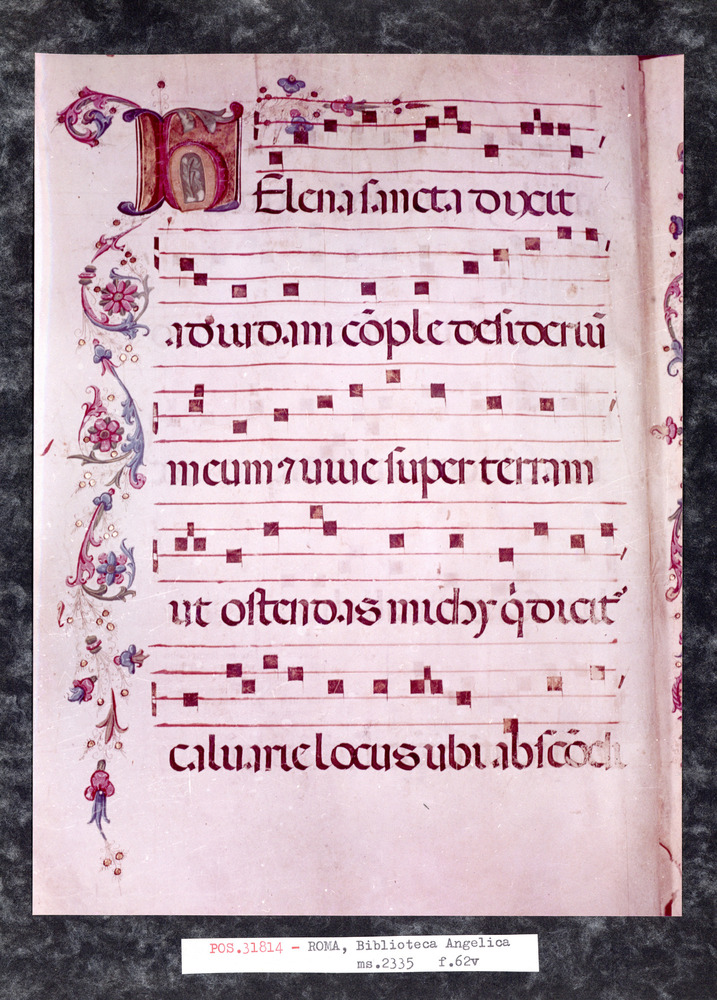 hElena sancta dixit
ad iudam cōple desideriū
meum ⁊ uiue super terram
ut ostendas michy q̇ dicit᷑
caluarie locus ubi abscōdi
POS.31814 - ROMA, Biblioteca Angelica
ms.2335 f.62v